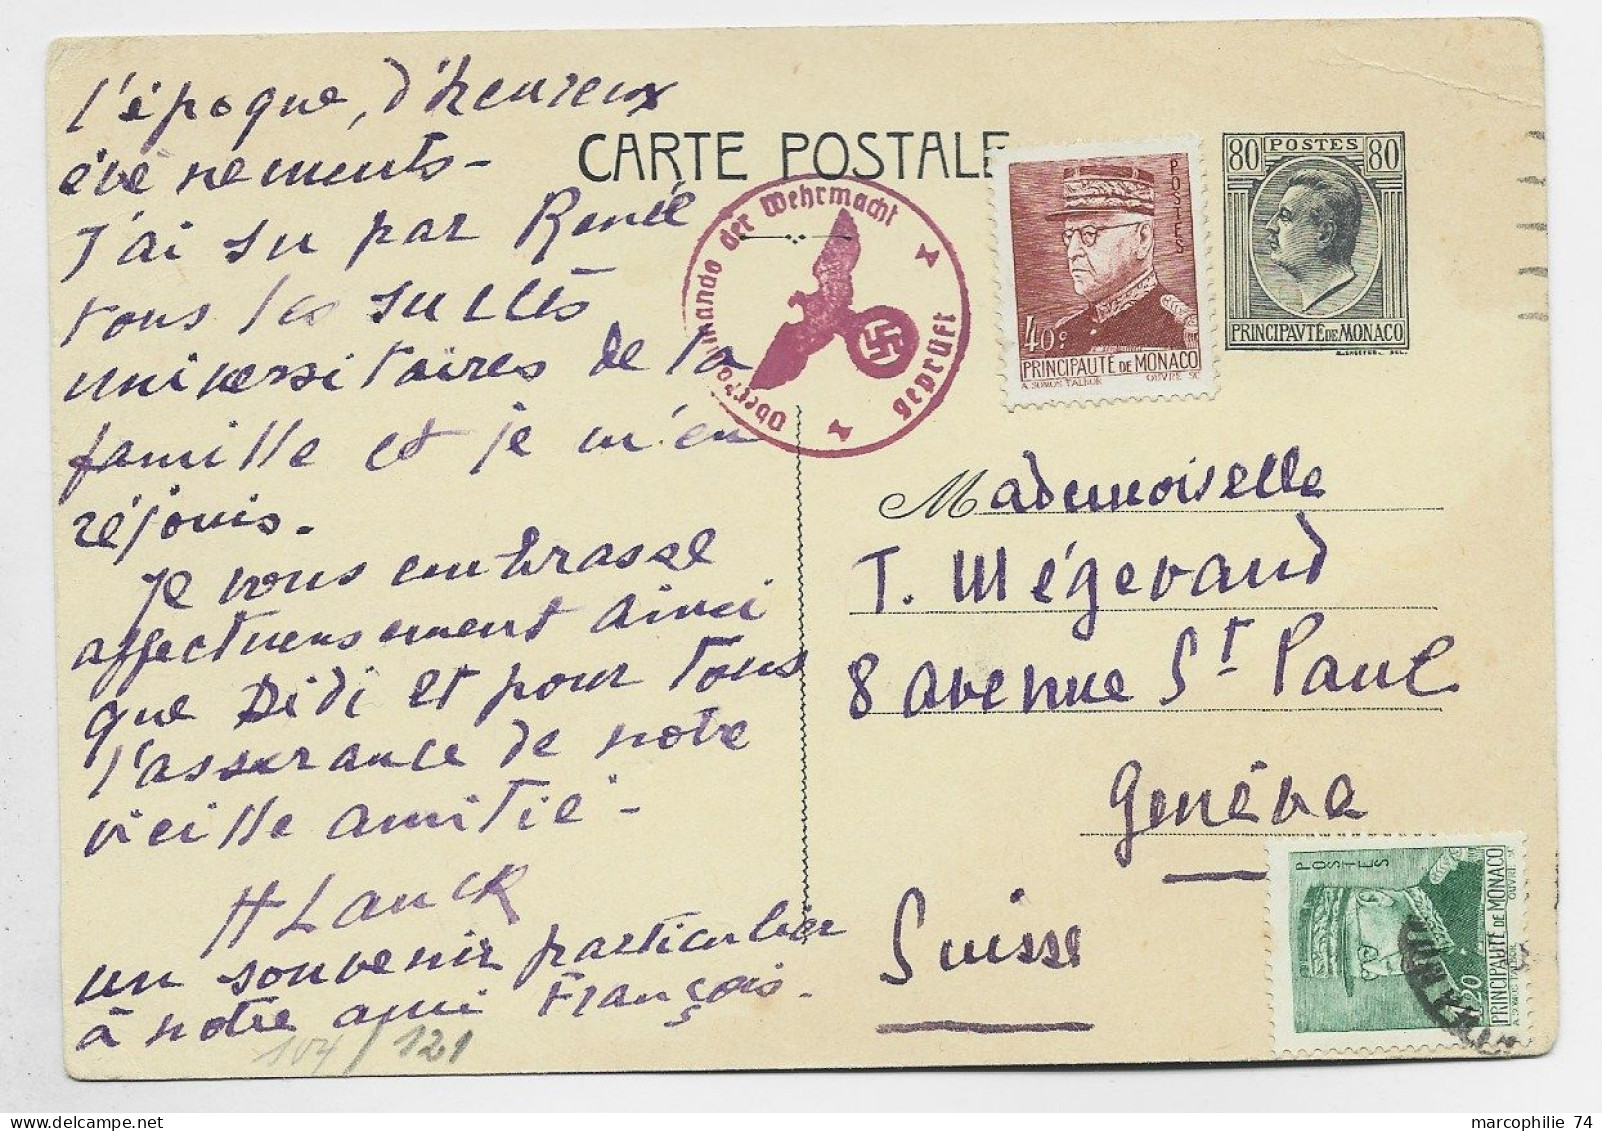 l'époque, d'heureux
évènements -
J'ai su par Renée
tous les succès
universitaires de la
famille et je m'en
réjouis.
Je vous embrasse
affectueusement ainsi
que Didi et pour tous
l'assurance de notre
vieille amitié -
H Lanck
un souvenir particulier
à notre ami François.
104 / 121
CARTE POSTALE
Oberkommando der Wehrmacht
Geprüft
POSTES
40c
PRINCIPAUTÉ DE MONACO
OUVRÉ SC
80 POSTES 80
PRINCIPAVTÉ DE MONACO
Mademoiselle
T. Mégevand
8 avenue St Paul
Genève
Suisse
POSTES
1,20
PRINCIPAUTÉ DE MONACO
marcophilie 74